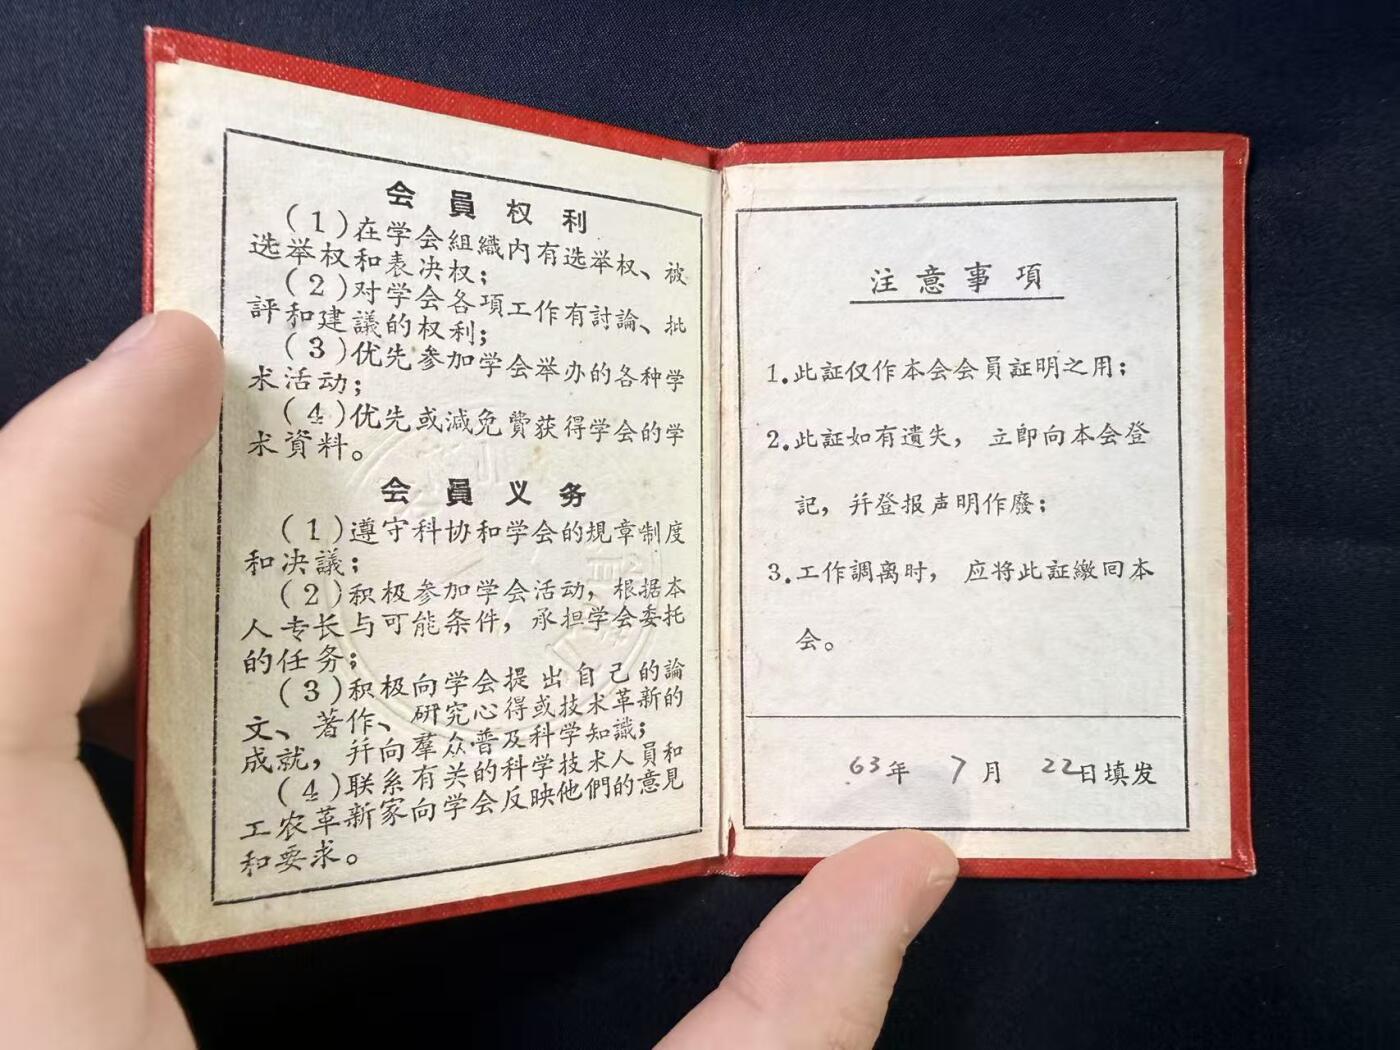 会員权利
(1)在学会組織内有选举权、被
选举权和表决权；
(2)对学会各項工作有討論、批
評和建議的权利；
(3)优先参加学会举办的各种学
术活动；
(4)优先或減免費获得学会的学
术資料。
会員义务
(1)遵守科协和学会的規章制度
和决議；
(2)积极参加学会活动，根据本
人专长与可能条件，承担学会委托
的任务；
(3)积极向学会提出自己的論
文、著作、研究心得或技术革新的
成就，幷向羣众普及科学知識；
(4)联系有关的科学技术人員和
工农革新家向学会反映他們的意見
和要求。
注意事項
1.此証仅作本会会員証明之用；
2.此証如有遺失，立即向本会登
記，幷登报声明作廢；
3.工作調离时，应将此証繳回本
会。
63年 7月 22日填发